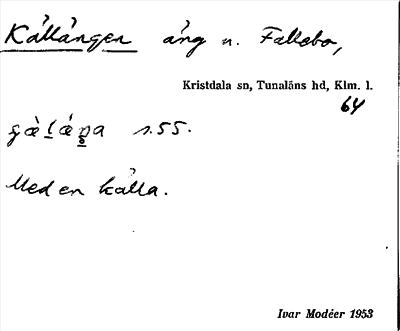 Källängen äng n. Fallebo,
Kristdala sn, Tunaläns hd, Klm. l.
64
s. 55.
Med en källa.
Ivar Modéer 1953